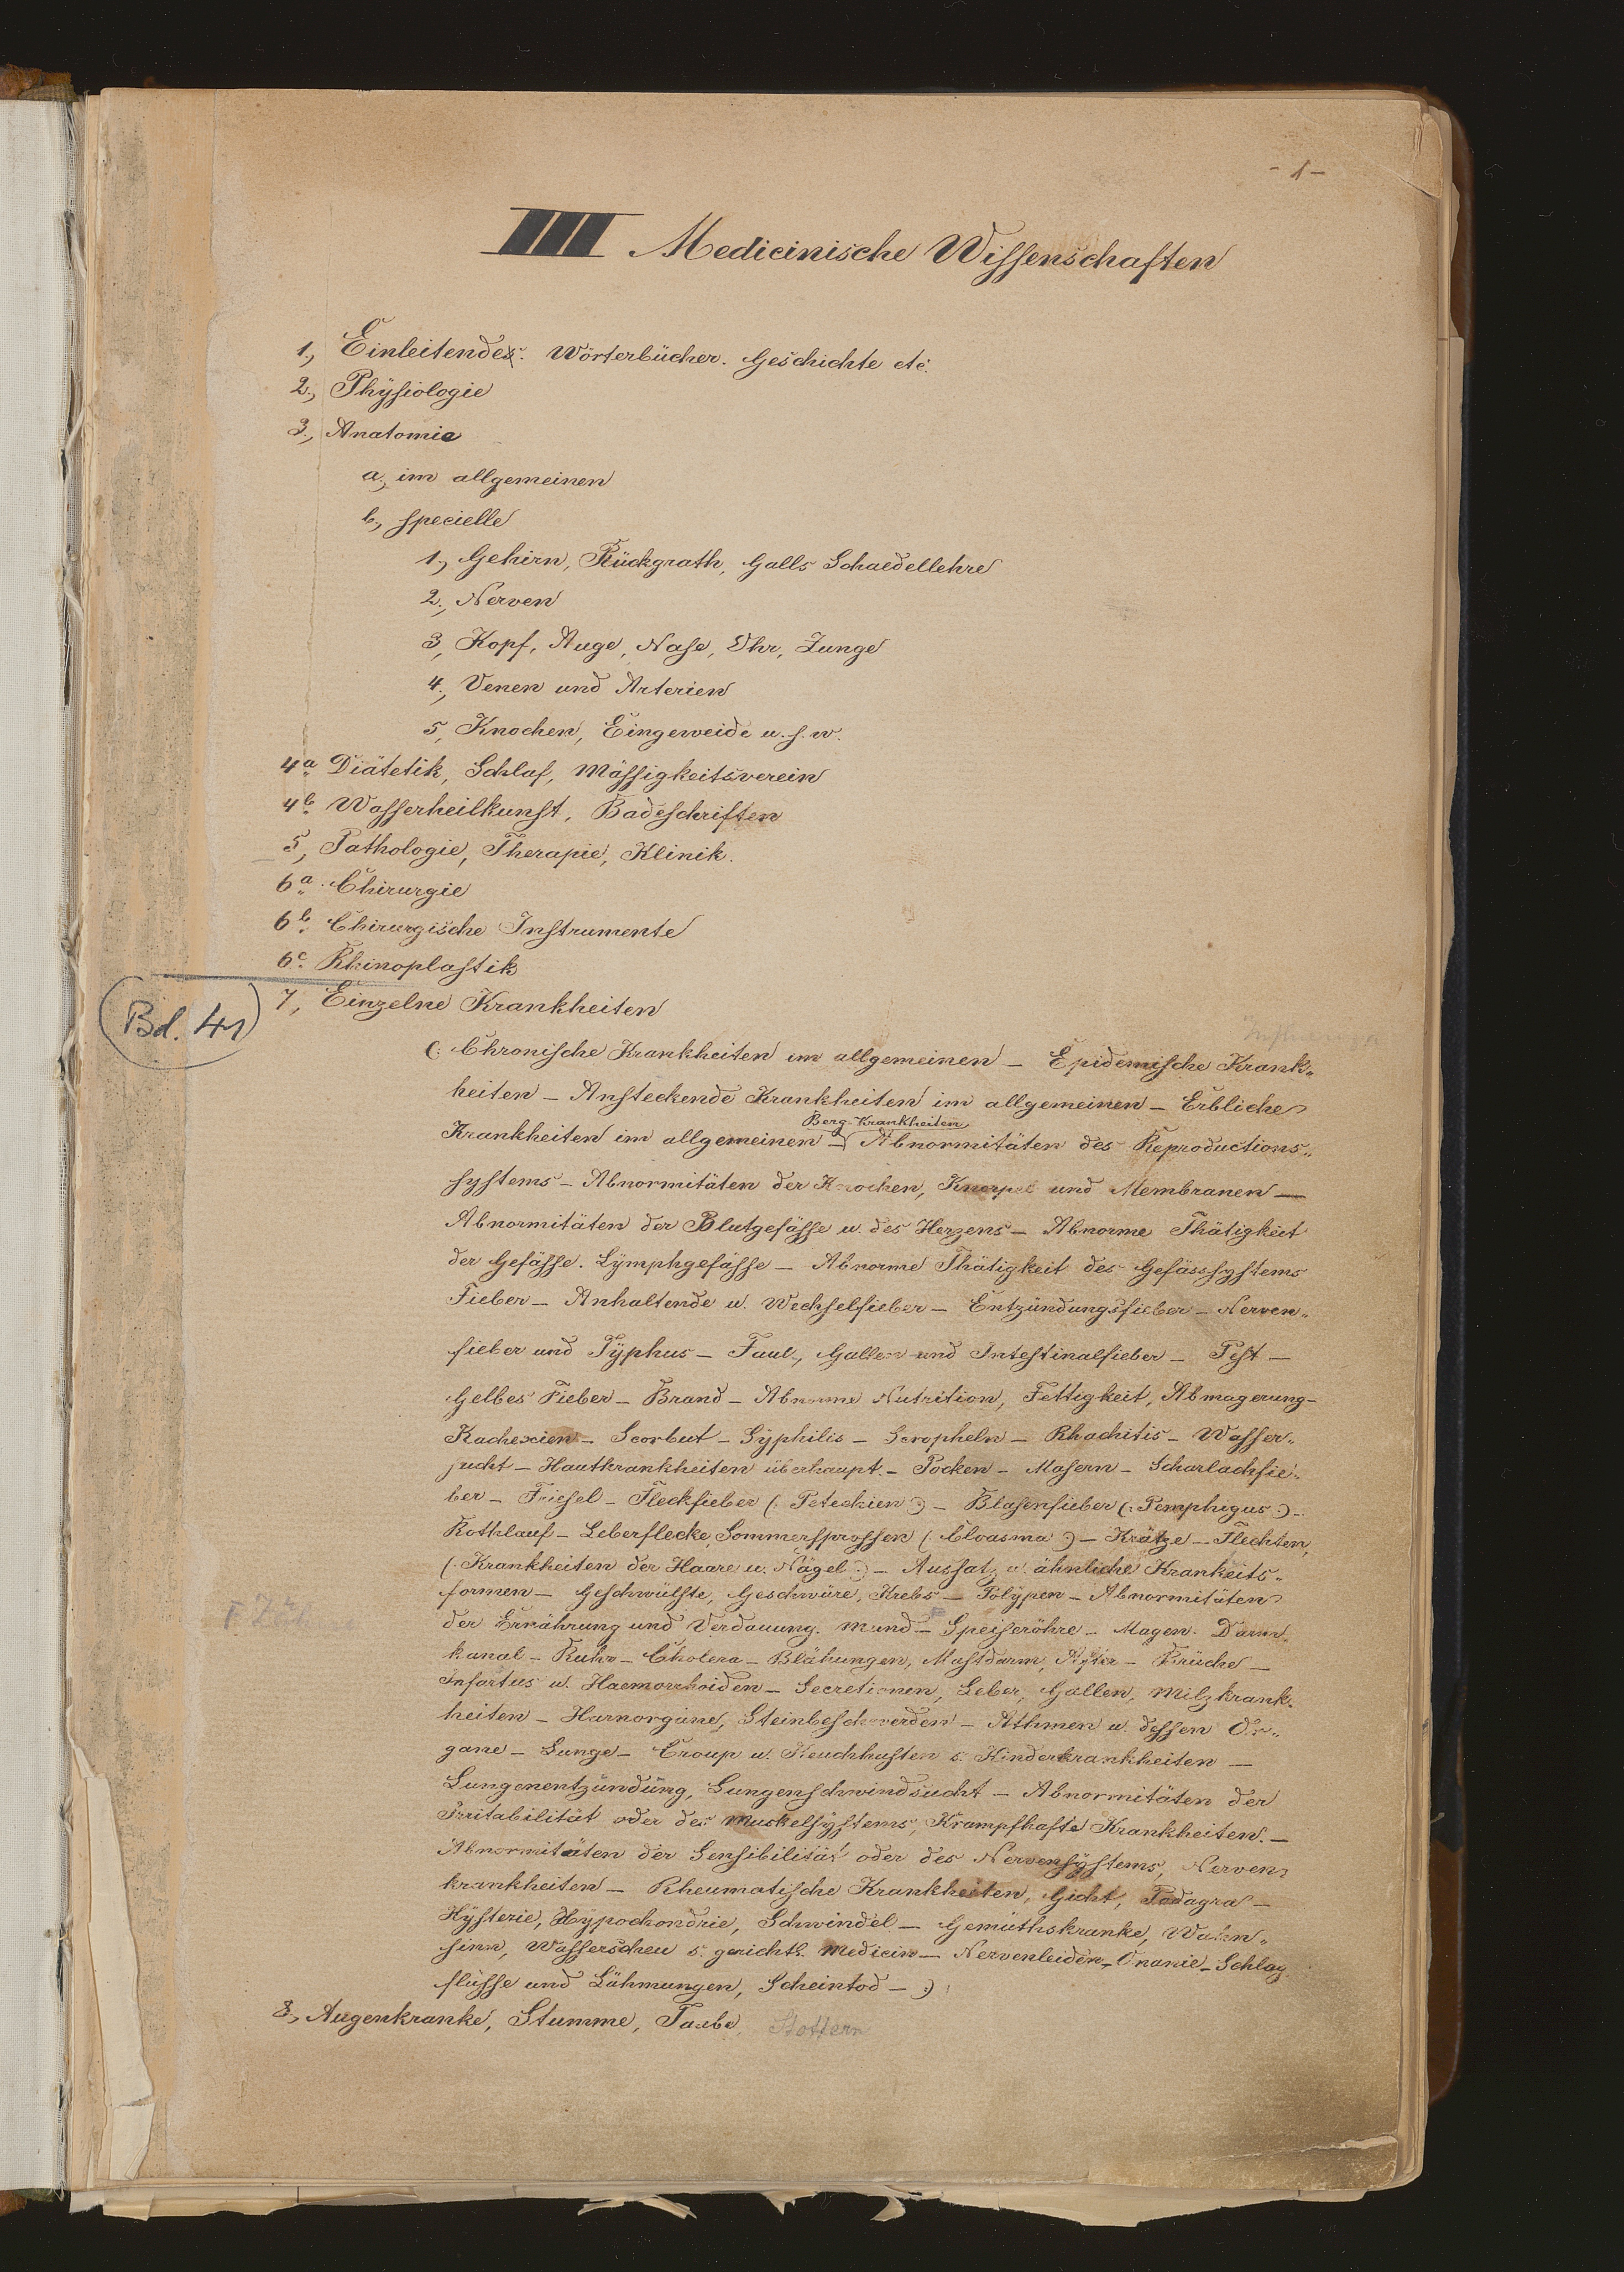 - 1 -
III Medicinische Wissenschaften
1., Einleitendes. Wörterbücher. Geschichte etc.
2., Physiologie
3., Anatomie
a., im allgemeinen
b., specielle
1., Gehirn, Rückgrath, Galls Schaedellehre
2., Nerven
3., Kopf, Auge, Nase, Ohr, Zunge
4., Venen und Arterien
5, Knochen, Eingeweide u. s. w.
4a Diätetik, Schlaf, Mässigkeitsverein
4b Wasserheilkunst, Badeschriften
5, Pathologie, Therapie, Klinik.
6a Chirurgie
6b Chirurgische Instrumente
6c Rhinoplastik
Bd. 41
7, Einzelne Krankheiten
(: Chronische Krankheiten im allgemeinen – Epidemische Krank„
heiten – Ansteckende Krankheiten im allgemeinen – Erbliche
Berg-Krankheiten
Krankheiten im allgemeinen – Abnormitäten des Reproductions„
systems – Abnormitäten der Knochen, Knorpel und Membranen –
Abnormitäten der Blutgefässe u. des Herzens – Abnorme Thätigkeit
der Gefässe. Lymphgefässe – Abnorme Thätigkeit des Gefässsystems
Fieber – Anhaltende u. Wechselfieber – Entzündungsfieber – Nerven„
fieber und Typhus – Faul-, Gallen- und Intestinalfieber – Pest –
Gelbes Fieber – Brand – Abnorme Nutrition, Fettigkeit, Abmagerung –
Kachexien – Scorbut – Syphilis – Scropheln – Rhachitis – Wasser„
sucht – Hautkrankheiten überhaupt – Pocken – Masern – Scharlachfie„
ber – Friesel – Fleckfieber (: Petechien :) – Blasenfieber (: Pemphigus :) –
Rothlauf – Leberflecke, Sommersprossen (: Cloasma :) – Krätze – Flechten,
(: Krankheiten der Haare u. Nägel :) – Aussatz u. ähnliche Krankeits„
formen – Geschwülste, Geschwüre, Krebs – Polypen – Abnormitäten
der Ernährung und Verdauung. Mund – Speiseröhre – Magen. Darm„
kanal – Ruhr – Cholera – Blähungen, Mastdarm, After – Brüche –
Infartus u. Haemorrhoiden – Secretionen, Leber, Gallen, Milzkrank„
heiten – Harnorgane, Steinbeschwerden – Athmen u. dessen Or„
gane – Lunge – Croup u. Keuchhusten s. Kinderkrankheiten –
Lungenentzündung, Lungenschwindsucht – Abnormitäten der
Irritabilität oder des Muskelsystems, Krampfhafte Krankheiten. –
Abnormitäten der Sensibilität oder des Nervensystems, Nerven„
krankheiten – Rheumatische Krankheiten, Gicht, Podagra –
Hysterie, Hypochondrie, Schwindel – Gemüthskranke, Wahn„
sinn, Wasserscheu s. gerichtl. Medicin – Nervenleiden – Onanie – Schlag
flüsse und Lähmungen, Scheintod – :)
8., Augenkranke, Stumme, Taube, Stottern